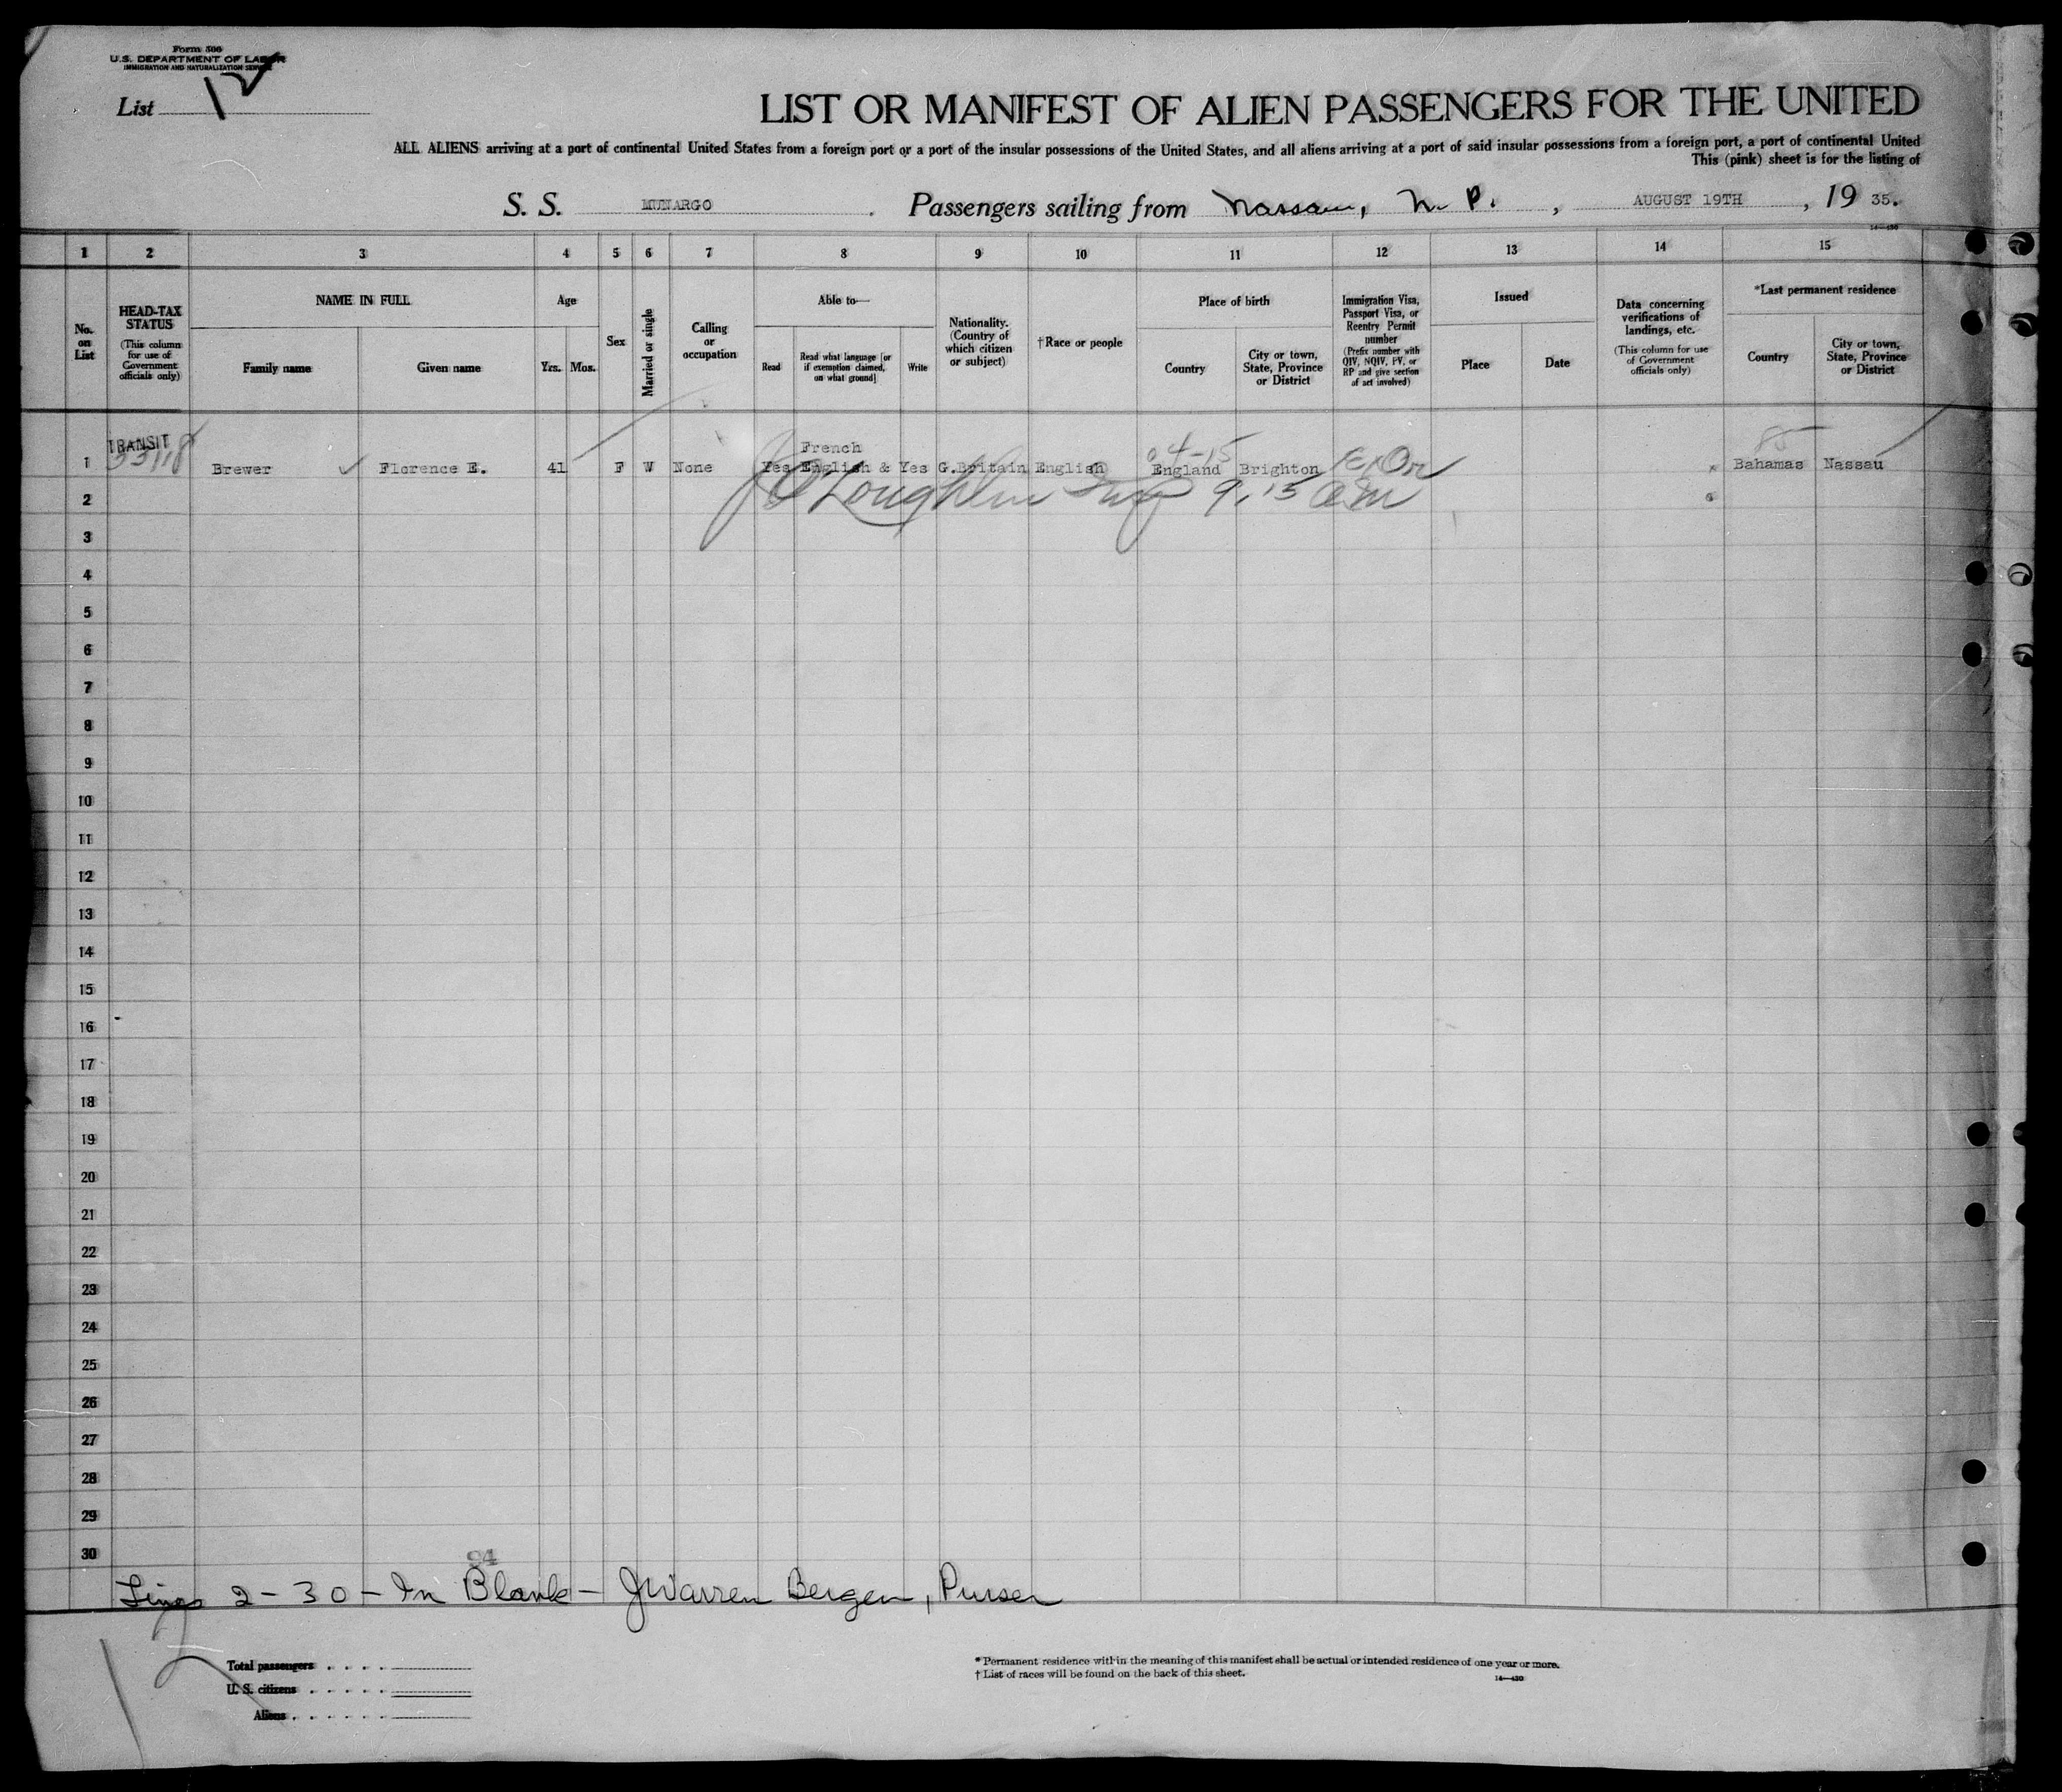 Form 500
U.S. DEPARTMENT OF LABOR
IMMIGRATION AND NATURALIZATION SERVICE
List 12
LIST OR MANIFEST OF ALIEN PASSENGERS FOR THE UNITED
ALL ALIENS arriving at a port of continental United States from a foreign port or a port of the insular possessions of the United States, and all aliens arriving at a port of said insular possessions from a foreign port, a port of continental United
This (pink) sheet is for the listing of
S. S. MUNARGO. Passengers sailing from Nassau, N. P., AUGUST 19TH, 19 35.
14—430
1 2 3 4 5 6 7 8 9 10 11 12 13 14 15
No. on List
HEAD-TAX STATUS (This column for use of Government officials only)
NAME IN FULL
Family name Given name
Age
Yrs. Mos.
Sex
Married or single
Calling or occupation
Able to—
Read Read what language [or if exemption claimed, on what ground] Write
Nationality. (Country of which citizen or subject)
†Race or people
Place of birth
Country City or town, State, Province or District
Immigration Visa, Passport Visa, or Reentry Permit number (Prefix number with QIV, NQIV, PV, or RP and give section of act involved)
Issued
Place Date
Data concerning verifications of landings, etc. (This column for use of Government officials only)
*Last permanent residence
Country City or town, State, Province or District
TRANSIT French 04-15 85
1 Brewer Florence E. 41 F W None Yes English & Yes G.Britain English England Brighton Bahamas Nassau
2 O'Loughlin 9.15 am
3
4
5
6
7
8
9
10
11
12
13
14
15
16
17
18
19
20
21
22
23
24
25
26
27
28
29
30
94
Lines 2-30-In Blank- J Warren Bergen, Purser
Total passengers
U. S. citizens
Aliens
* Permanent residence within the meaning of this manifest shall be actual or intended residence of one year or more.
† List of races will be found on the back of this sheet.
14—430